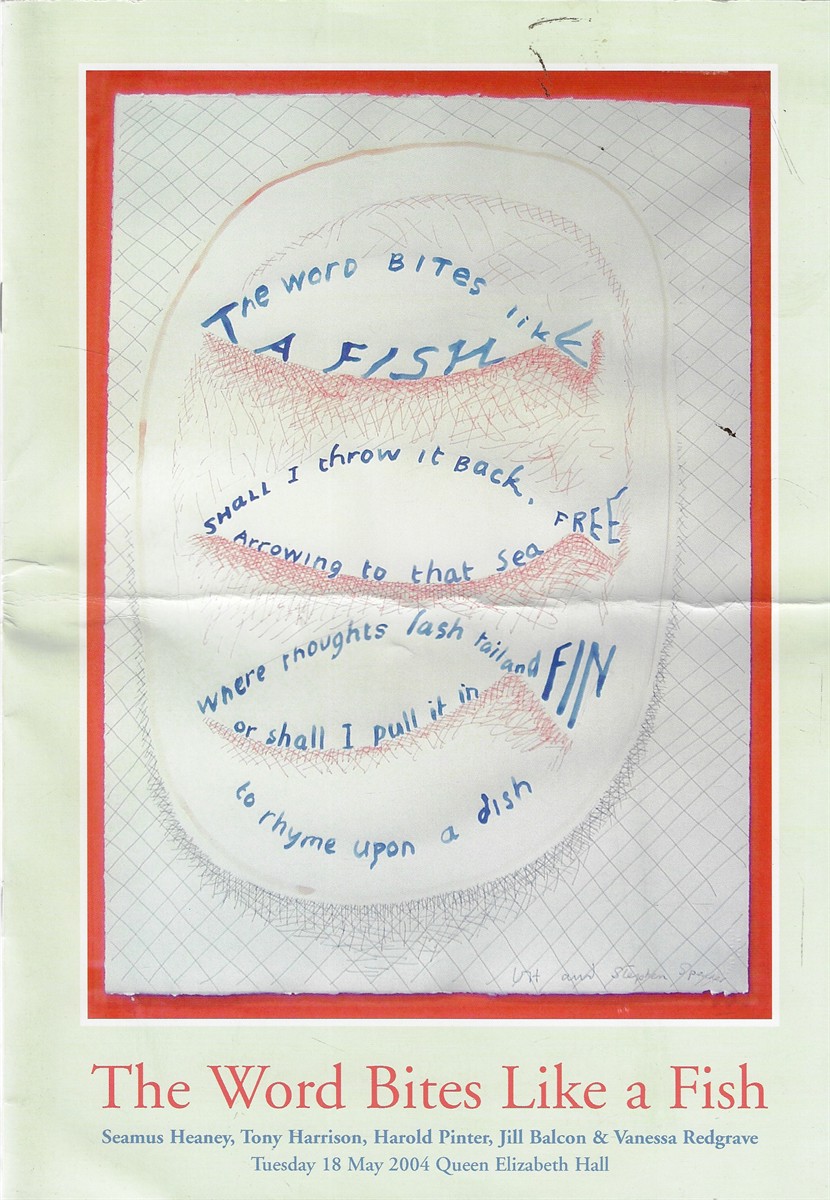 The WORD BITES like
A FISH
SHALL I throw it Back, FREE
Arrowing to that Sea
where thoughts lash tail and FIN
or shall I pull it in
to rhyme upon a dish
and Stephen Spender
The Word Bites Like a Fish
Seamus Heaney, Tony Harrison, Harold Pinter, Jill Balcon & Vanessa Redgrave
Tuesday 18 May 2004 Queen Elizabeth Hall